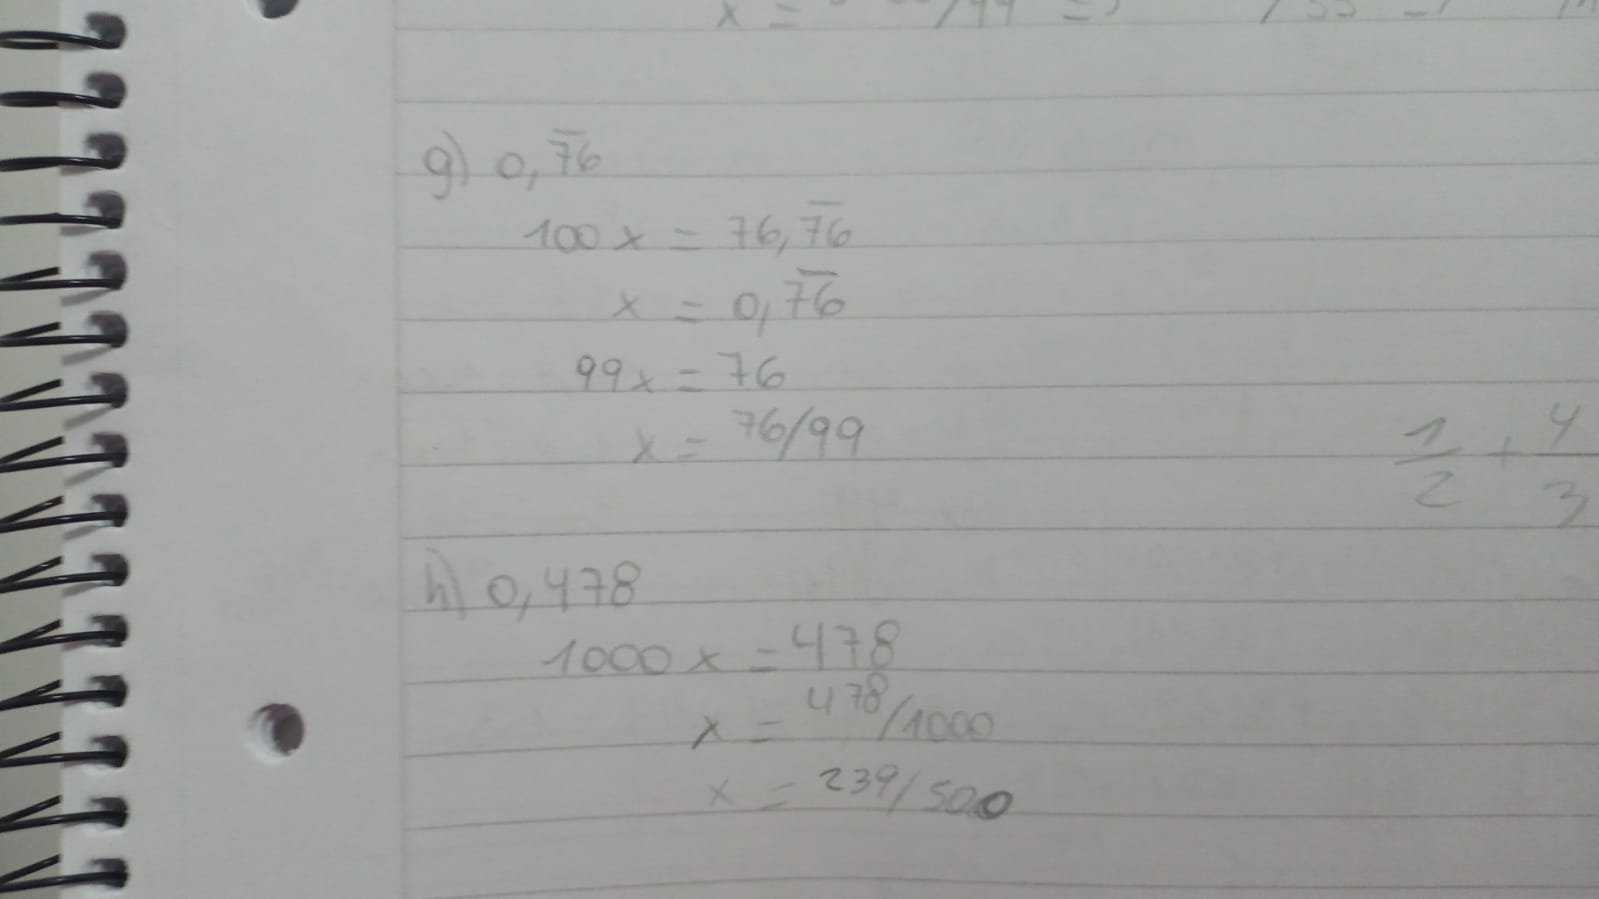 g) 0,7̅6̅
100x = 76,7̅6̅
x = 0,7̅6̅
99x = 76
x = 76/99
1/2 + 4/3
h) 0,478
1000x = 478
x = 478/1000
x = 239/500